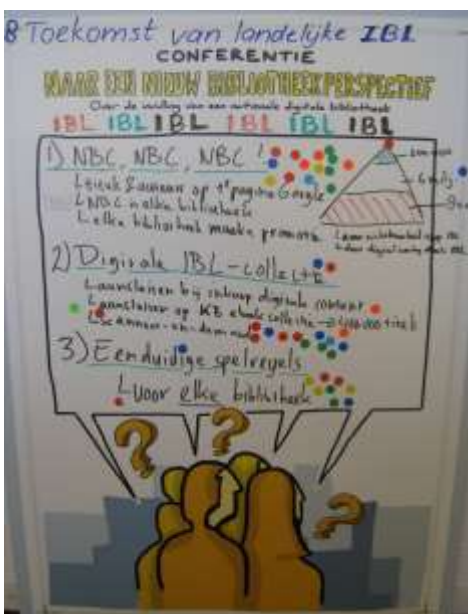 8 Toekomst van landelijke IBL
CONFERENTIE
NAAR EEN NIEUW BIBLIOTHEEKPERSPECTIEF
Over de invulling van een nationale digitale bibliotheek
IBL IBL IBL IBL IBL IBL
1) NBC, NBC, NBC!
op 1e pagina Google
NBC in elke bibliotheek
elke bibliotheek maakt promotie
2) Digitale IBL-collectie
aansluiten bij inkoop digitale content
aansluiten op KB collectie
Scannen-on-demand
3) Eenduidige spelregels
voor elke bibliotheek
? ? ?